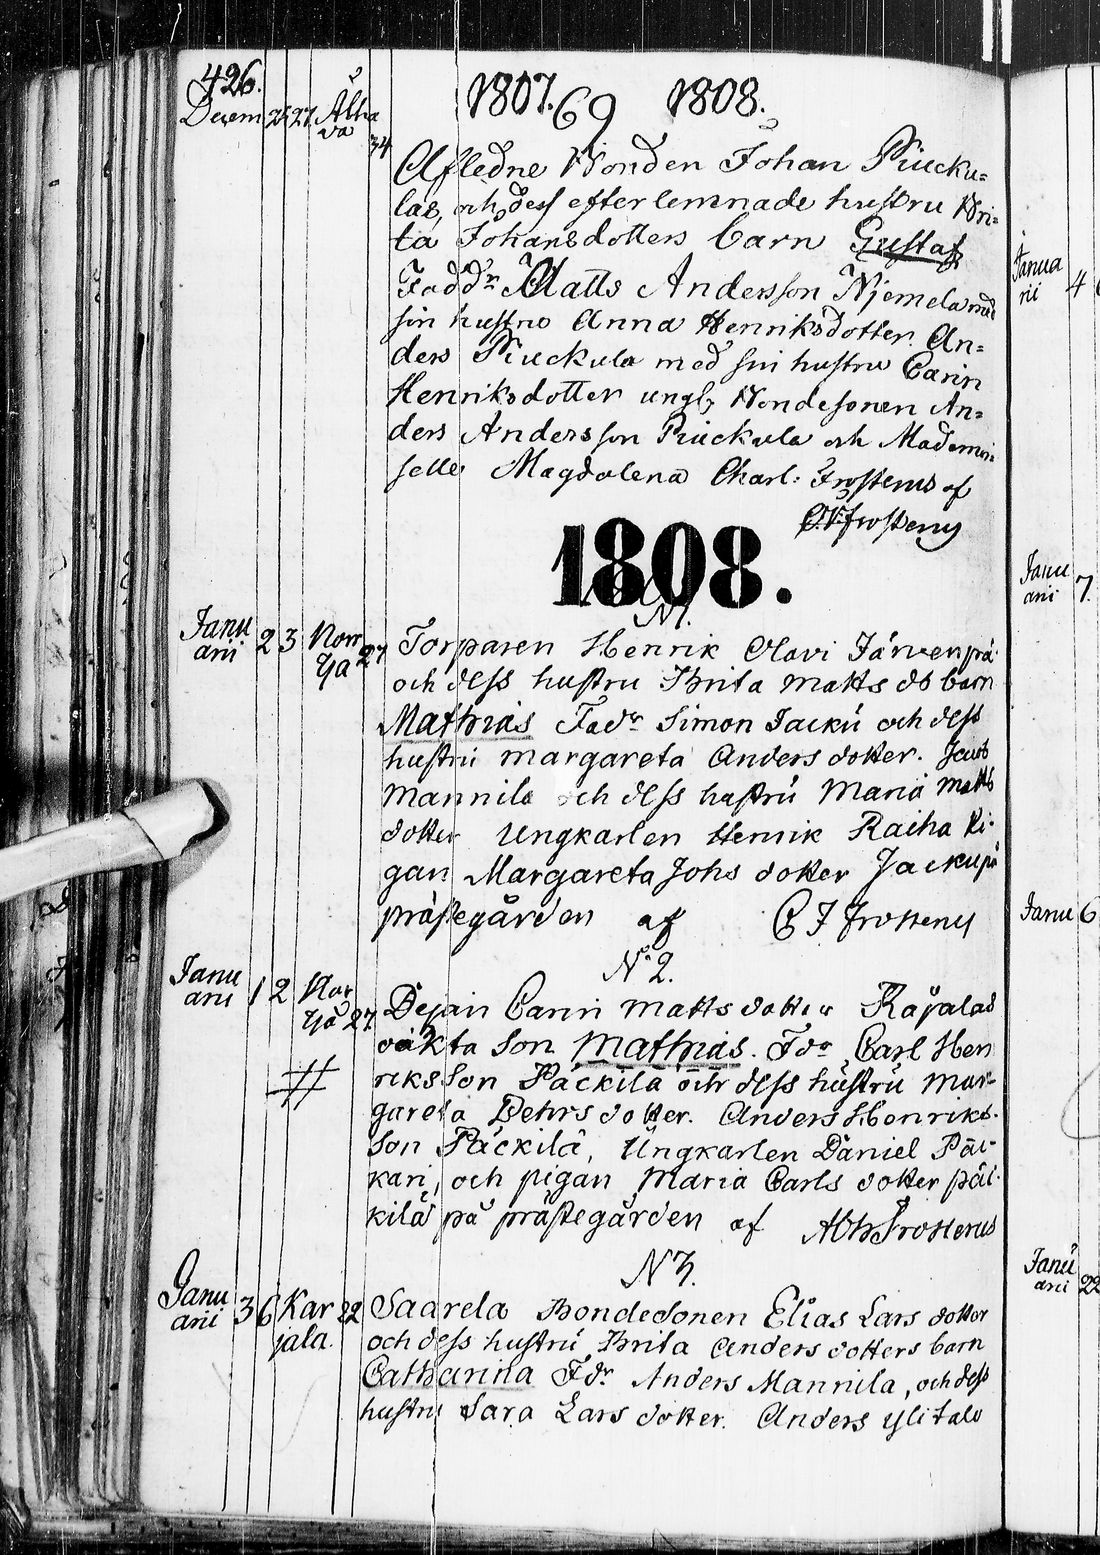 426.
1807. 69 1808.
Decem 25 27 Alha
va 34
Afledne Bonden Johan Piucku=
las, och dess efterlemnade hustru Bri=
ta Johansdotters barn Gustaf
Faddr Matts Andersson Njemela med
sin hustro Anna Henriksdotter. An=
ders Piuckula med sin hustru Carin
Henriksdotter ungb, Bondesonen An=
ders Andersson Piuckula och Madem=
selle Magdalena Charl: Frosterus af
Frosterus
1808.
N1.
Janu
arii 2 3 Norr
27
Torparen Henrik Olavi Järvenpä
och dess hustru Brita Matts ds barn
Mathias Fadr Simon Jackú och dess
hustrú margareta Anders dotter. Jacob
Mannila och dess hustrú Maria Matts
dotter Ungkarlen Henrik Raiha Pi-
gan Margareta Johs dotter Jacku på
prästegården af C F Frosterus
N:2.
Janu
arii 1 2 Nor
27
Dejan Carin Matts dotter Räpalas
oäkta Son Mathias. Fdr Carl Hen
riks Son Päckilä och dess hústrú Mar-
gareta Pehrs dotter. Anders Henriks-
Son Päckilä, Ungkarlen Daniel Päl-
kari, och pigan Maria Carls dotter päl-
kilä på prästegården af Abr Frosterus
N3.
Janu
arii 3 6 Kar
jala. 22
Saarela Bondesonen Elias Lars dotter
och dess hustrú Brita Anders dotters barn
Catharina Fdr Anders Mannila, och dess
hustru Sara Lars dotter. Anders ylitalo
Janua
rii 4
Janu
arii 7.
Janu 6
Janu
arii 22